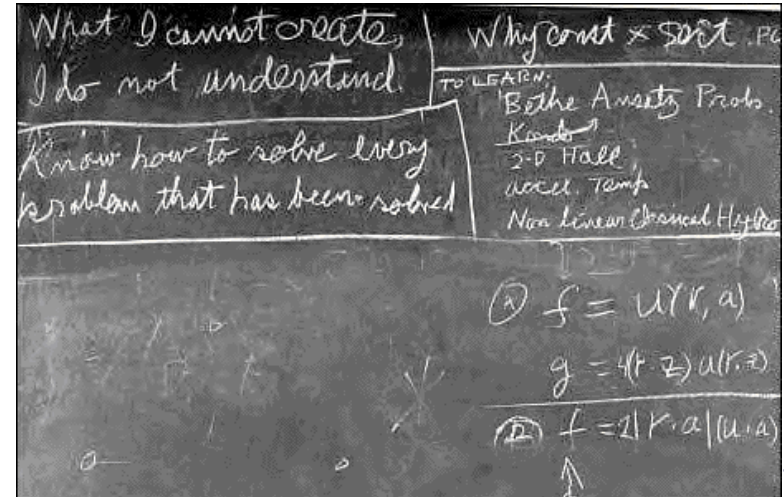 What I cannot create,
I do not understand.
Know how to solve every
problem that has been solved
Why const × sort . PO
TO LEARN:
Bethe Ansatz Probs.
Kondo
2-D Hall
accel. Temp
Non linear Classical Hydro
f = u(r, a)
g = 4(r·z) u(r,z)
f = 2|r·a|(u·a)